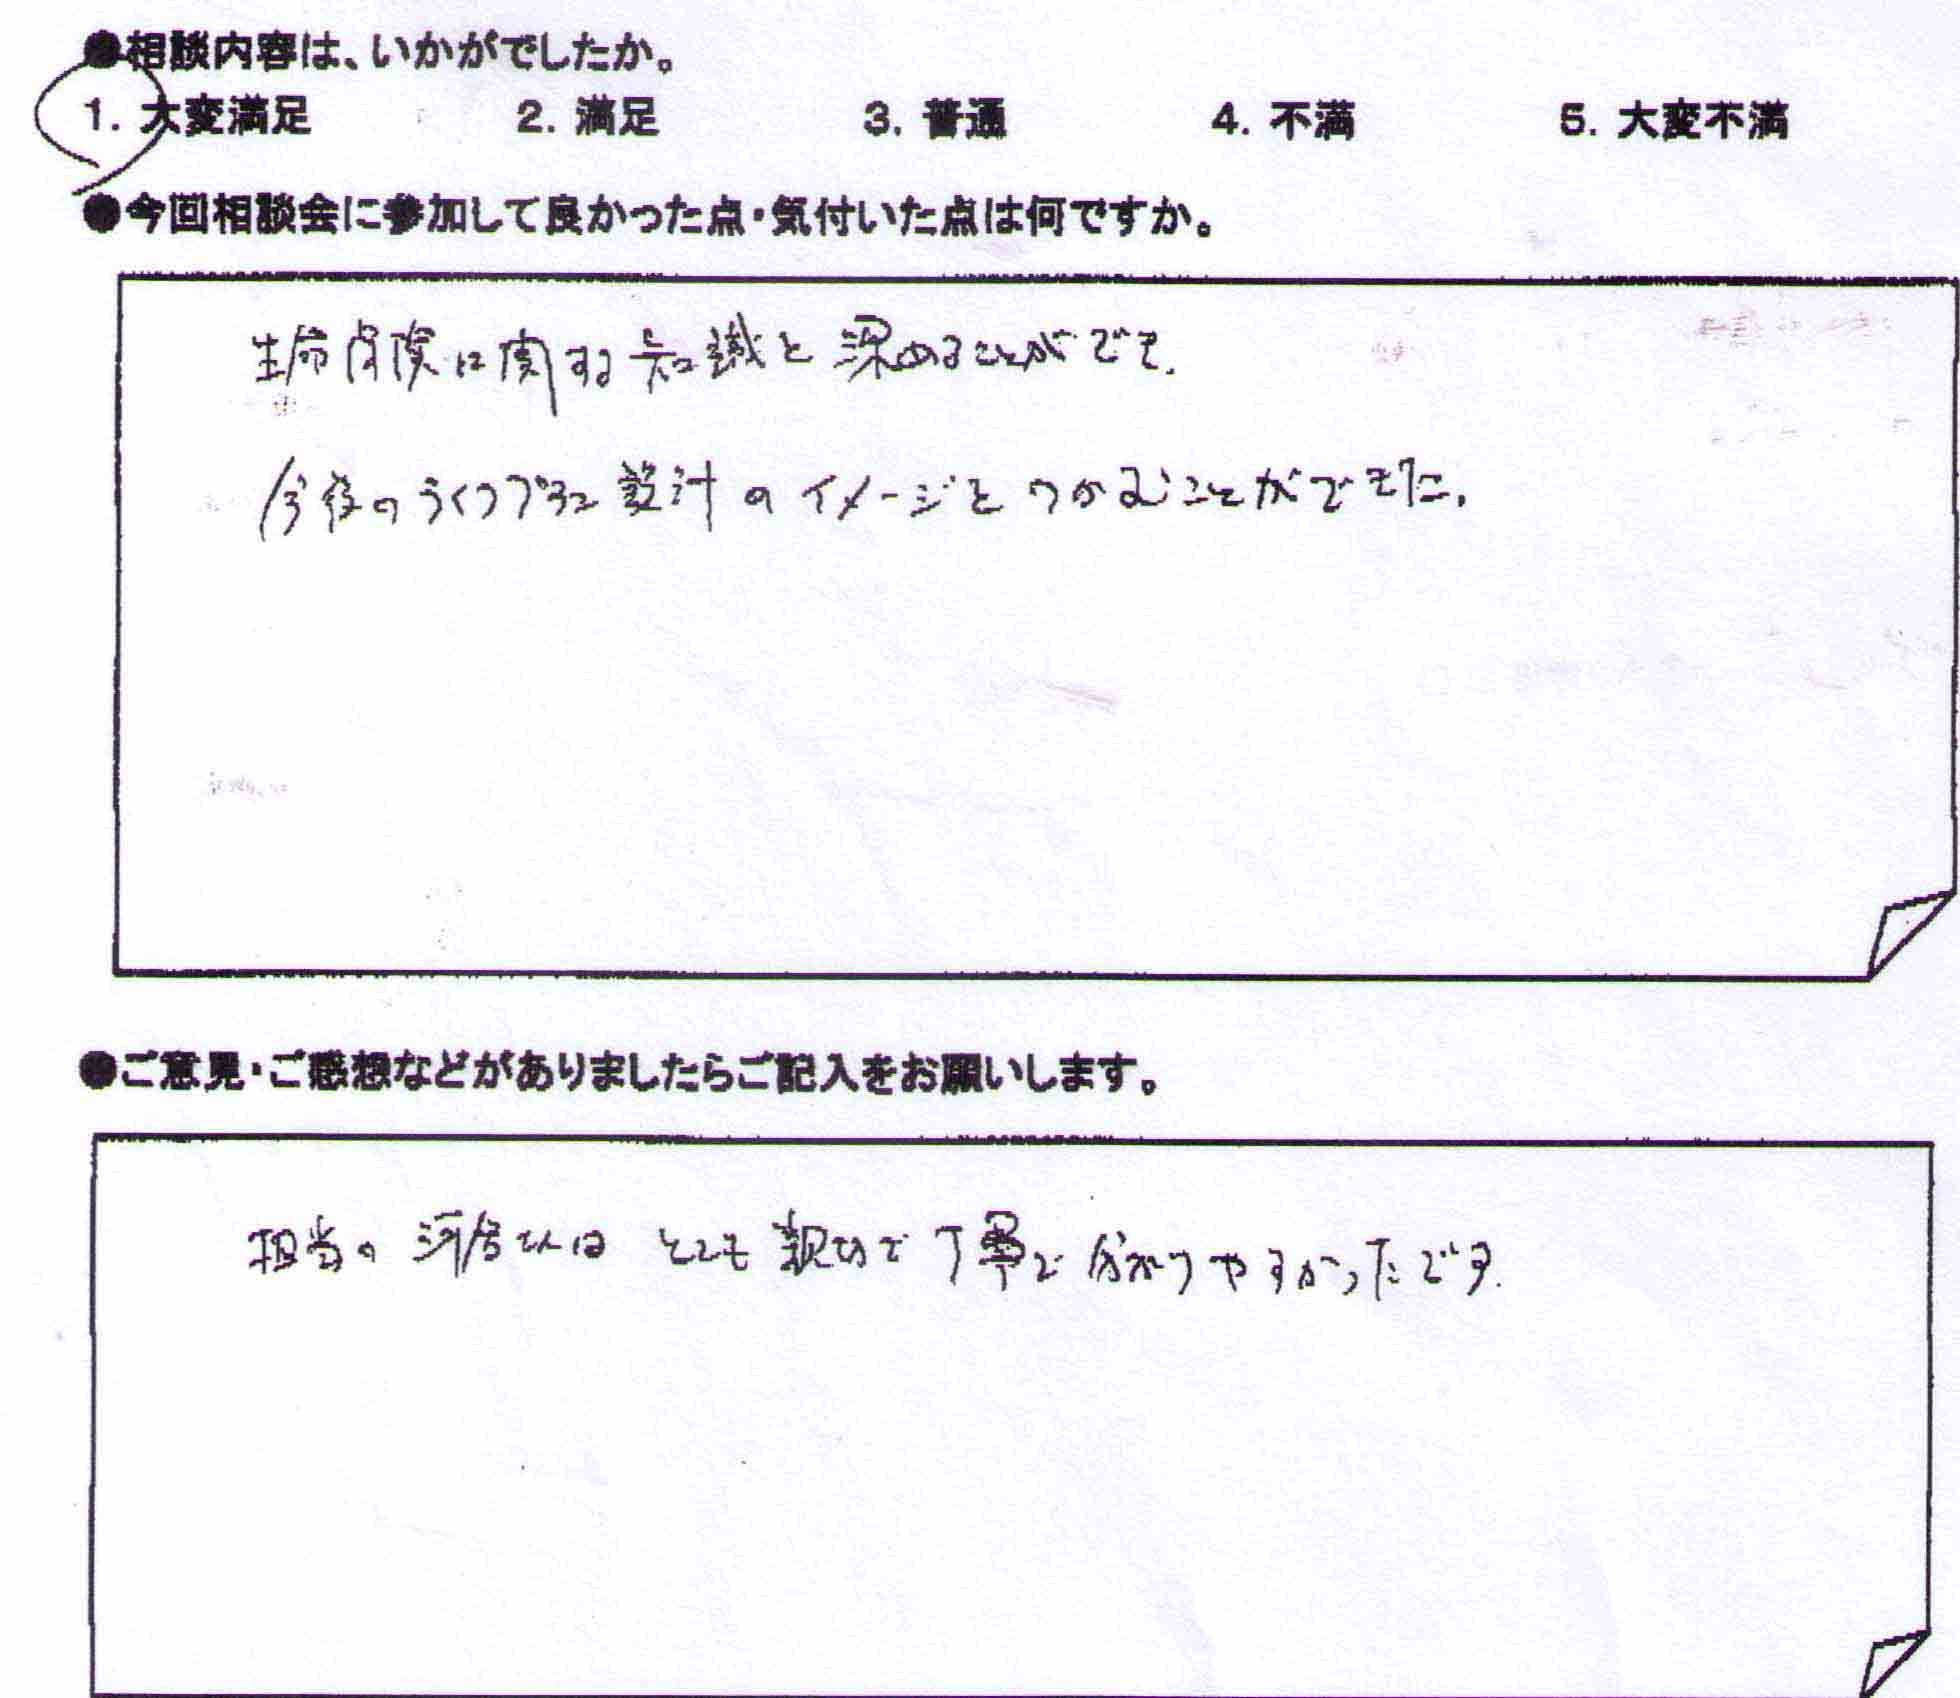 ●相談内容は、いかがでしたか。
1. 大変満足 2. 満足 3. 普通 4. 不満 5. 大変不満
●今回相談会に参加して良かった点・気付いた点は何ですか。
生命保険に関する知識を深めることができ、
今後のライフプラン設計のイメージをつかむことができた。
●ご意見・ご感想などがありましたらご記入をお願いします。
担当の さんは とても親切で丁寧で分かりやすかったです。